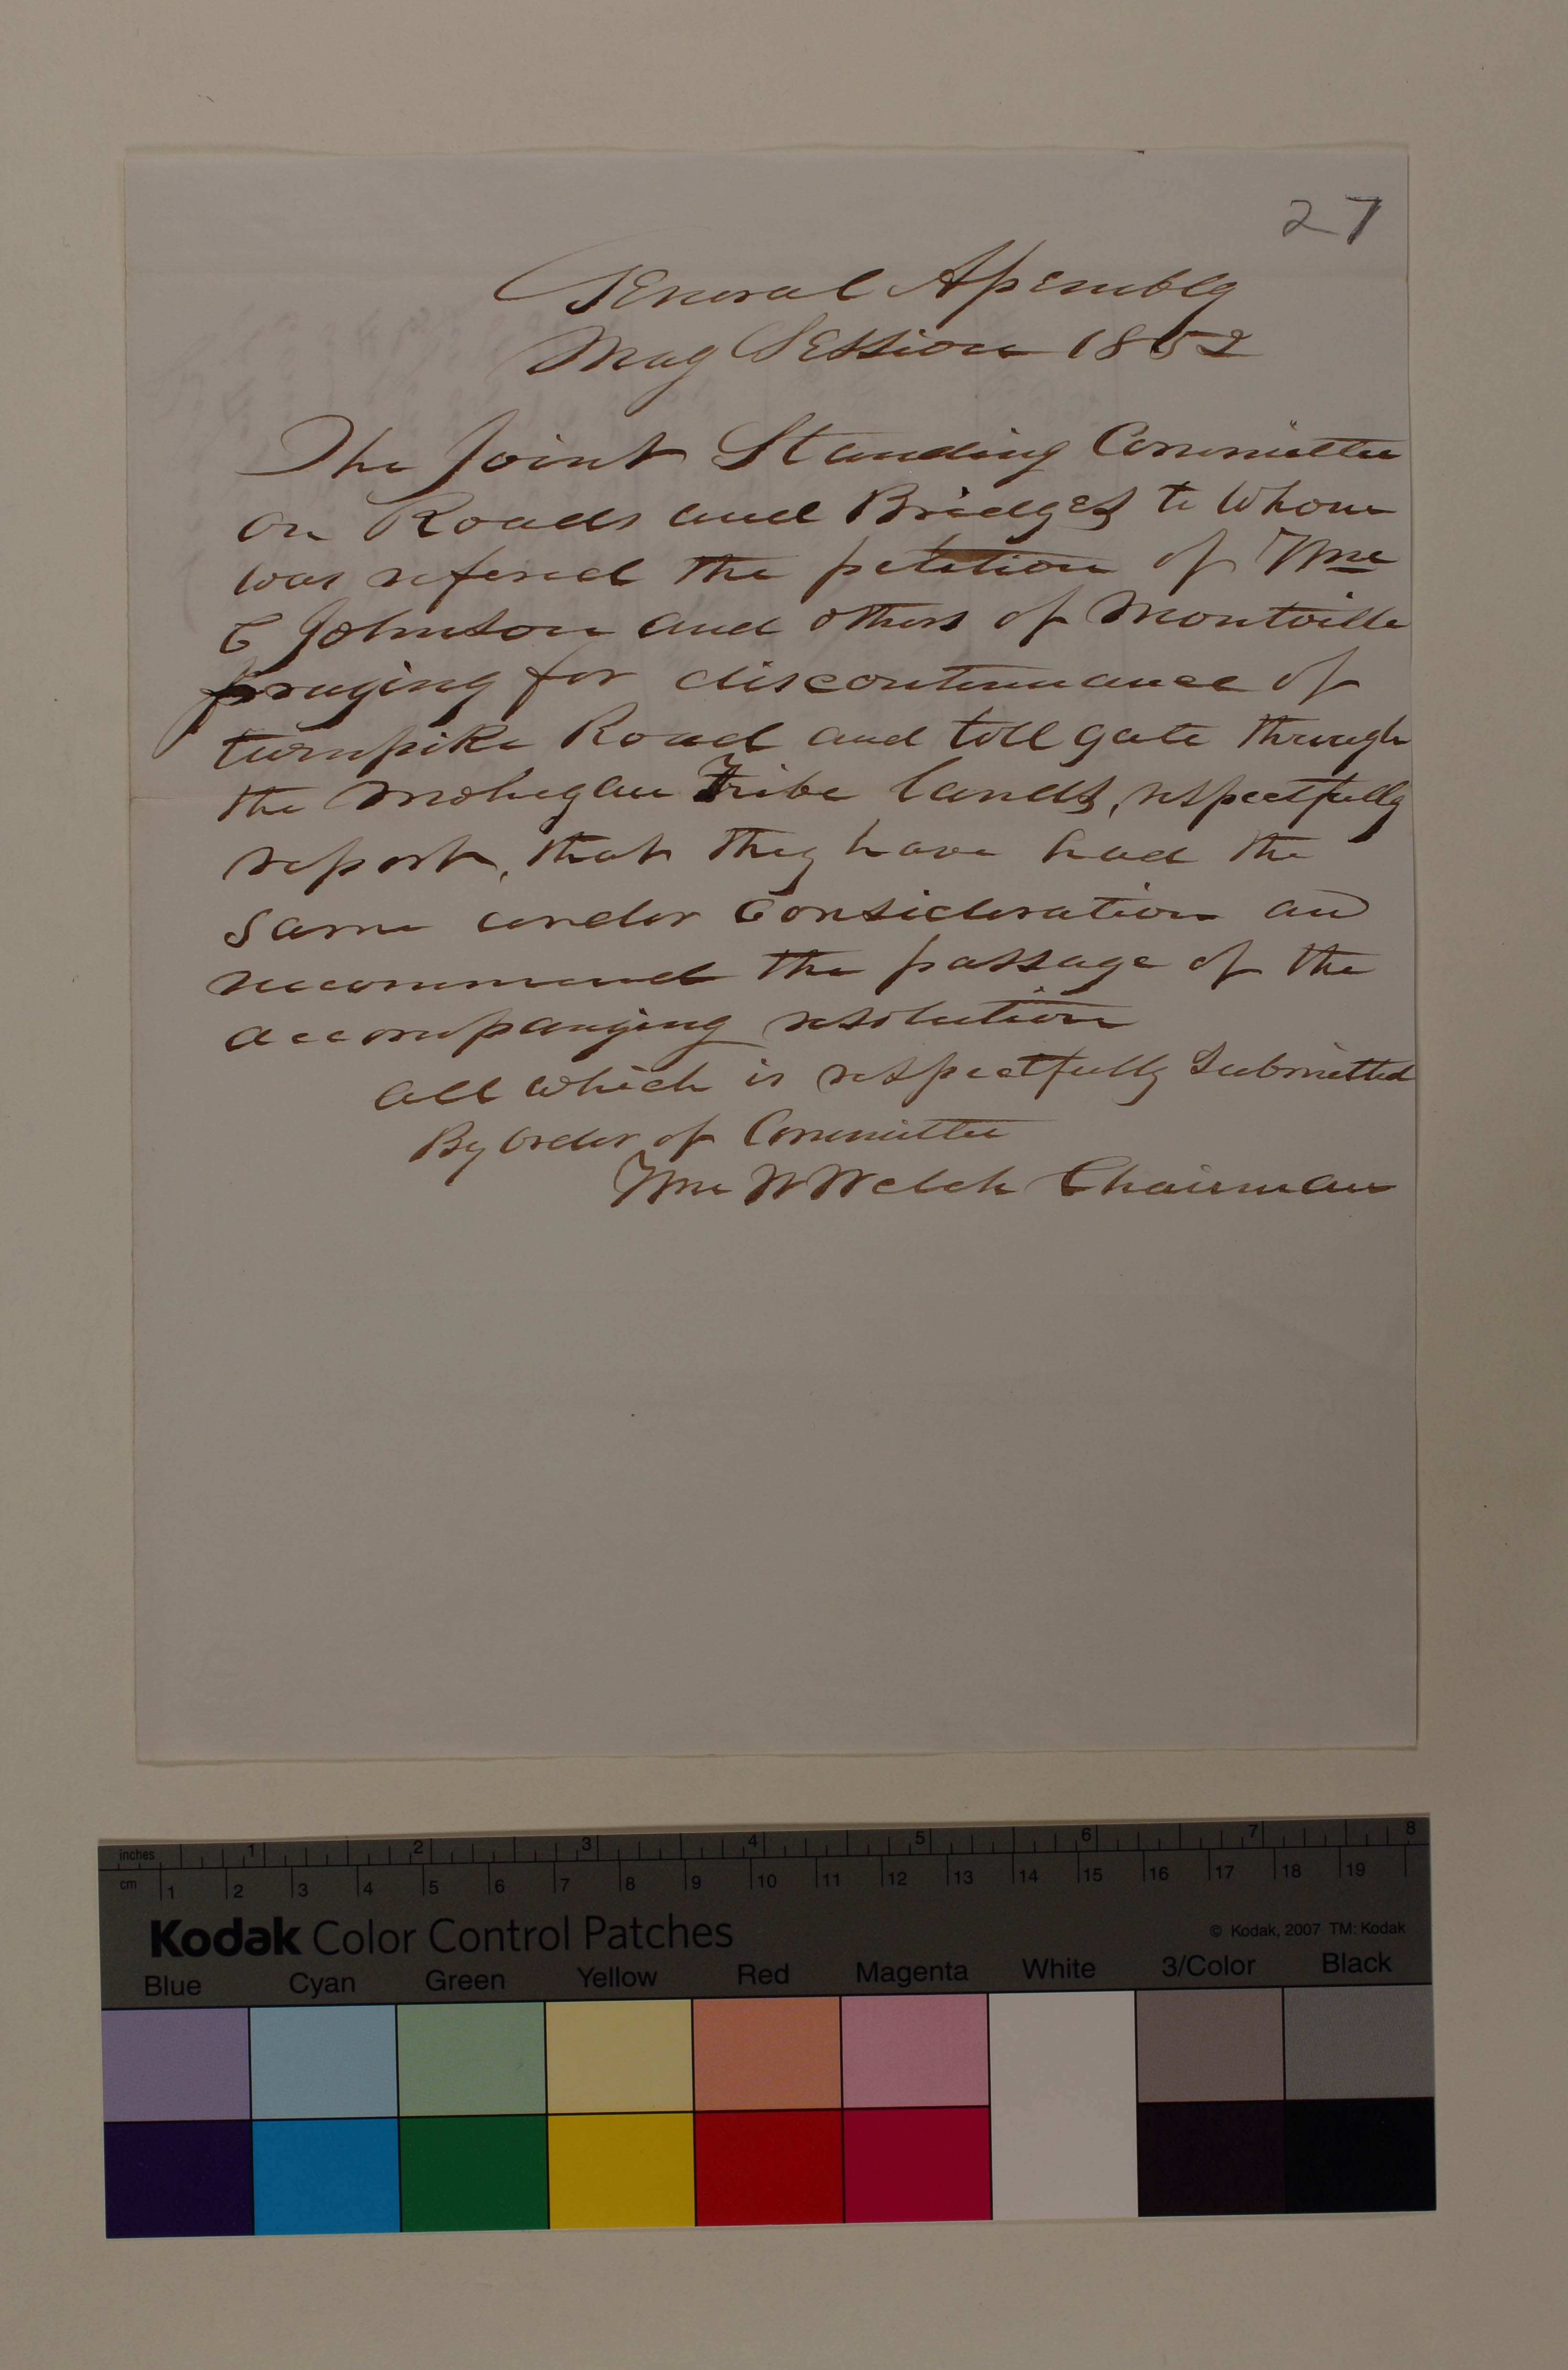 27
General Assembly
May Session 1852
The Joint Standing Committee
on Roads and Bridges to whom
was refered the petition of Wm
C Johnson and others of Montville
praying for discontinuance of
turnpike Road and toll gate through
the Mohegan Tribe lands, respectfully
report, that they have had the
same under Consideration and
recommend the passage of the
accompanying resolution
all which is respectfully Submitted
By Order of Committee
Wm W Welch Chairman
inches 1 2 3 4 5 6 7 8
cm 1 2 3 4 5 6 7 8 9 10 11 12 13 14 15 16 17 18 19
Kodak Color Control Patches
© Kodak, 2007 TM: Kodak
Blue Cyan Green Yellow Red Magenta White 3/Color Black